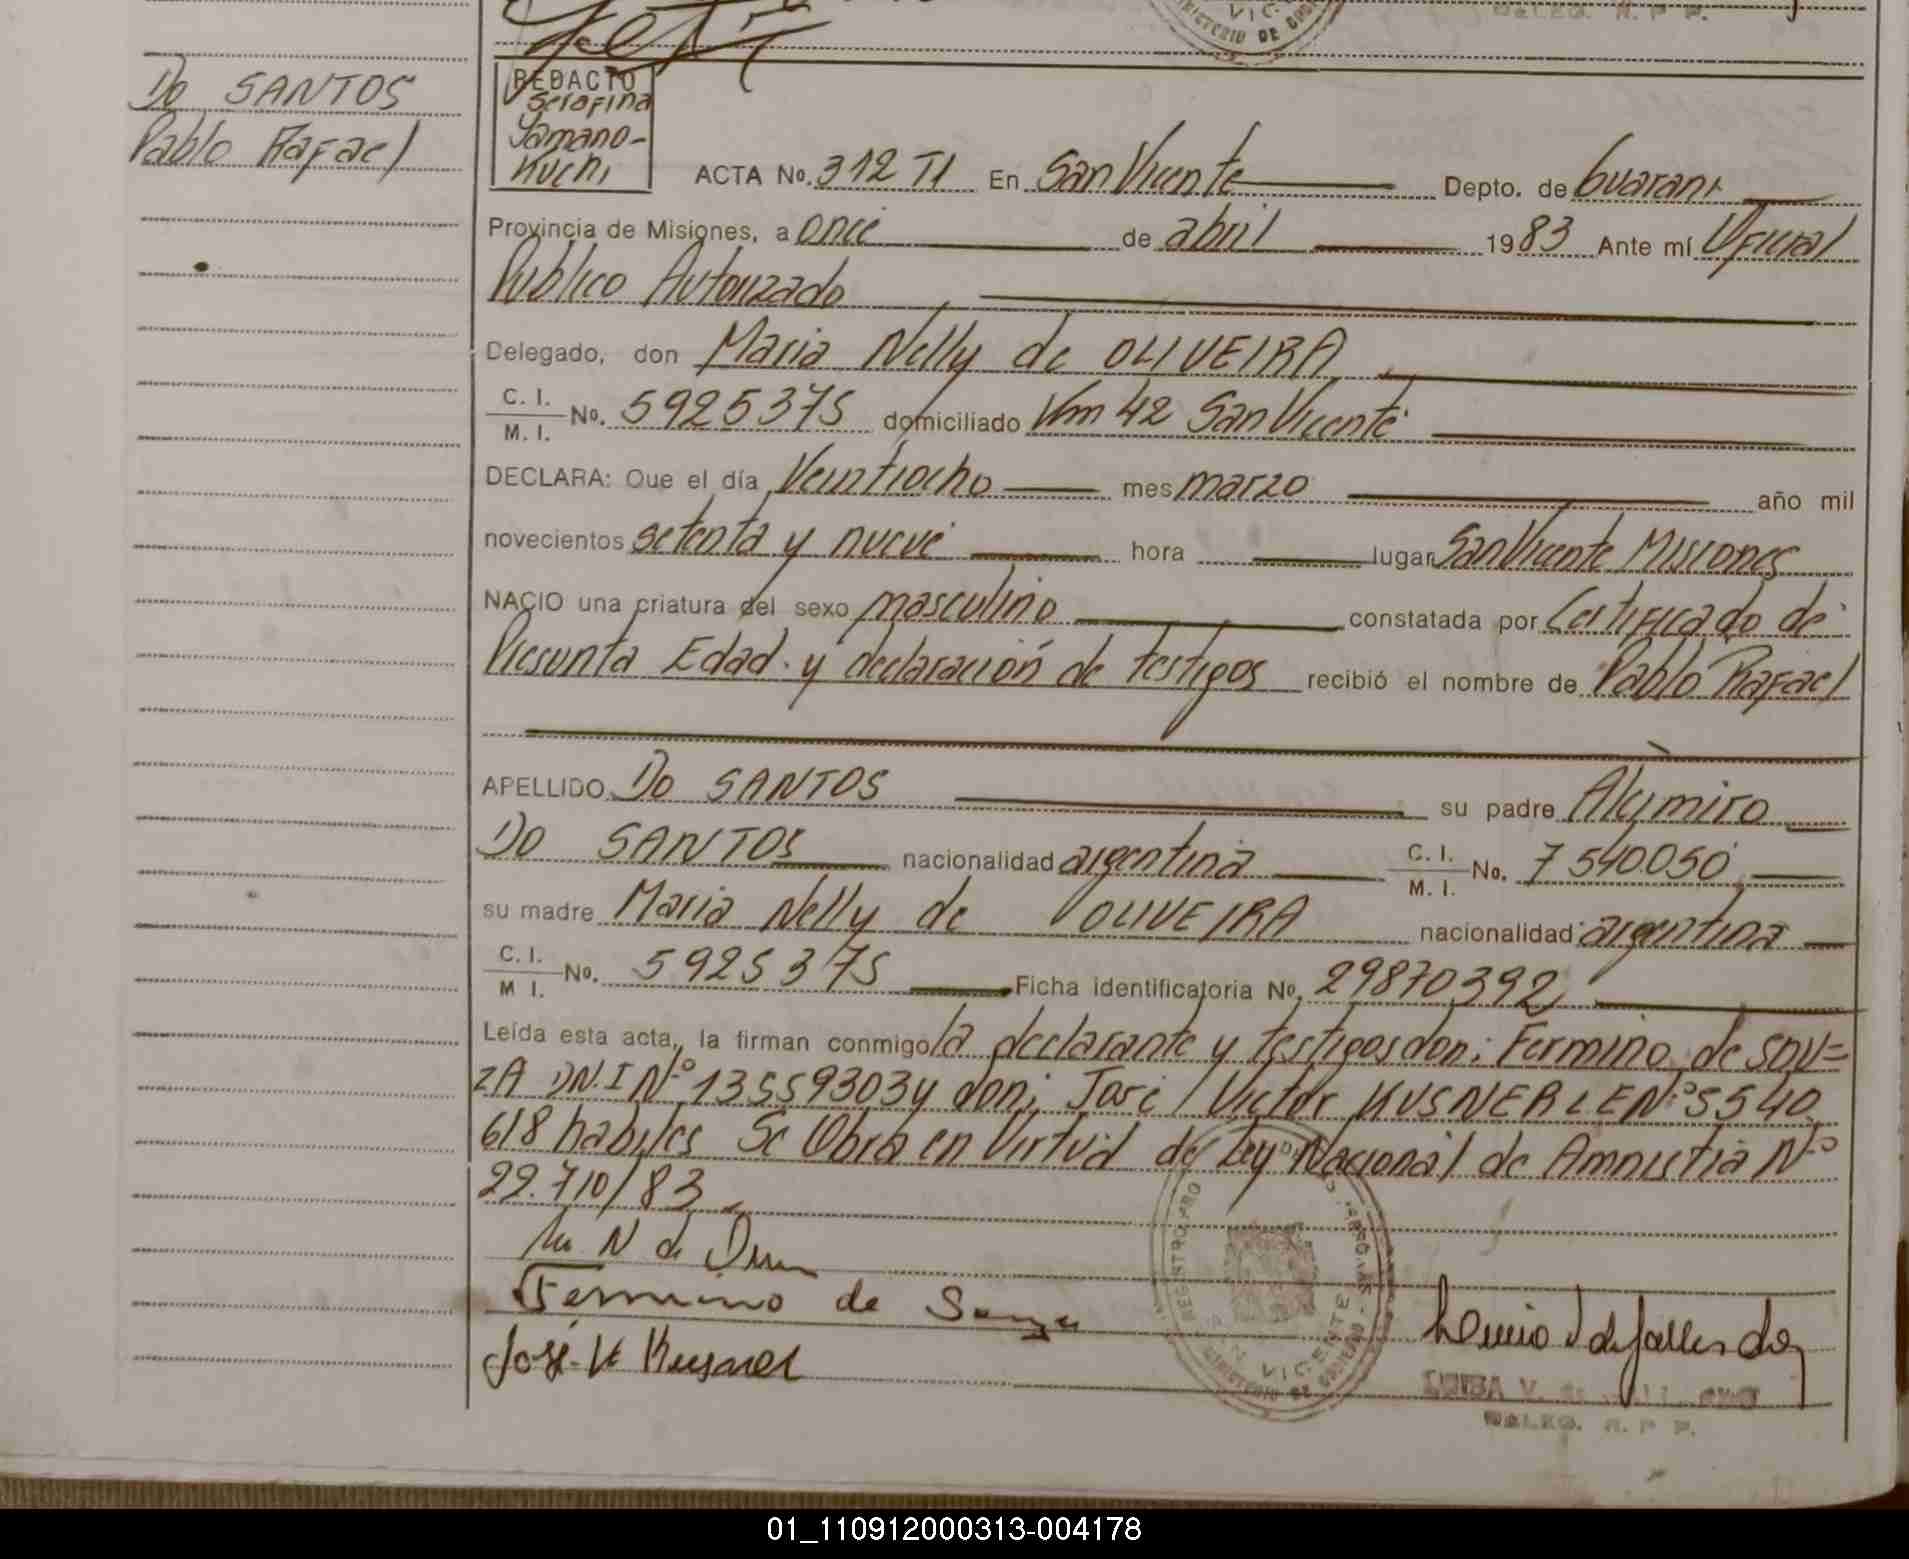 VIC.
DIRECTORIO DE
DELEG. R. P. P.
DO SANTOS
Pablo Rafael
REDACTO
Serafina
Yamano-
Kuchi
ACTA No. 312 TI En San Vicente Depto. de Guarani
Provincia de Misiones, a once de abril 1983 Ante mí Oficial
Publico Autorizado
Delegado, don Maria Nelly de OLIVEIRA
C. I.
M. I.
No. 5925375 domiciliado Km 42 San Vicente
DECLARA: Que el día Veintiocho mes marzo año mil
novecientos setenta y nueve hora lugar San Vicente Misiones
NACIO una criatura del sexo masculino constatada por Certificado de
Presunta Edad y declaración de testigos recibió el nombre de Pablo Rafael
APELLIDO DO SANTOS su padre Alcimiro
DO SANTOS nacionalidad argentina C. I.
M. I.
No. 7540.050
su madre Maria Nelly de OLIVEIRA nacionalidad argentina
C. I.
M I.
No. 5925375 Ficha identificatoria No. 29870392
Leída esta acta, la firman conmigo la declarante y testigos don: Fermino de SOU=
ZA DN.I Nº 13559303 y don; José Victor KUSNER LE Nº 5540
618 habiles Se Obra en Virtud de Ley Nacional de Amnistia Nº
22.710/83
Ma N de
Fermino de Souza
José V Kusner
SAN VICENTE
LUISA V.
DELEG. R. P. P.
01_110912000313-004178